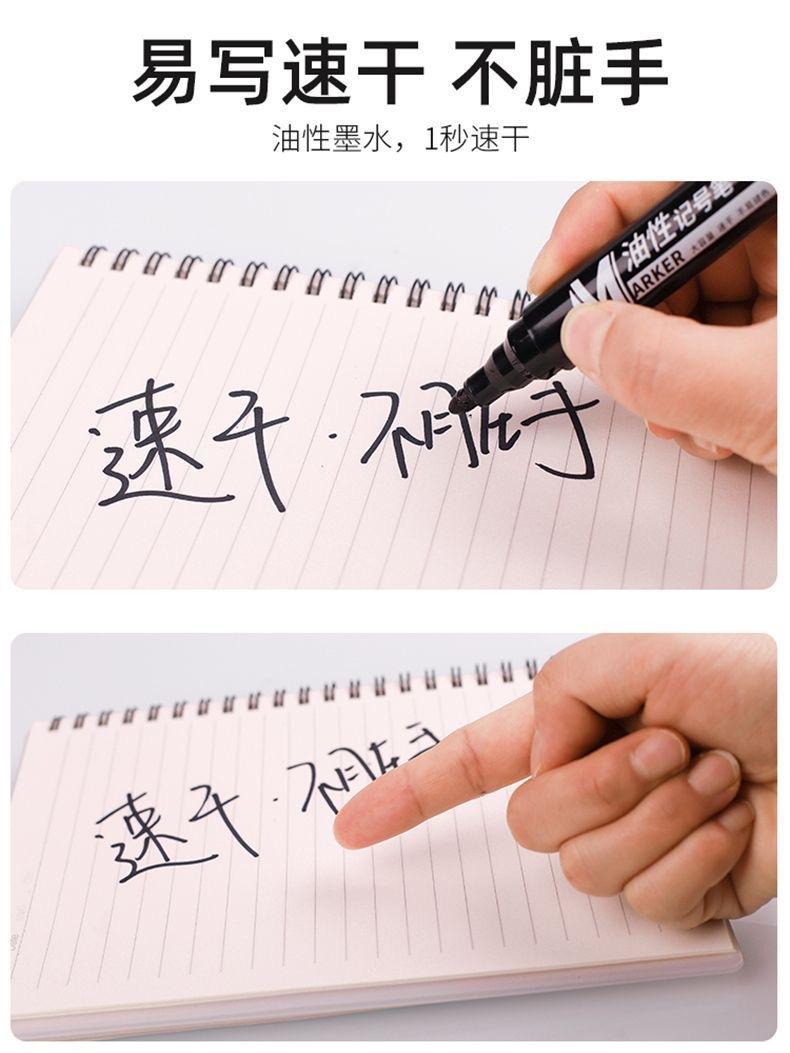 易写速干 不脏手
油性墨水，1秒速干
油性记号笔
MARKER
大容量 速干 不易掉色
速干·不脏手
速干·不脏手